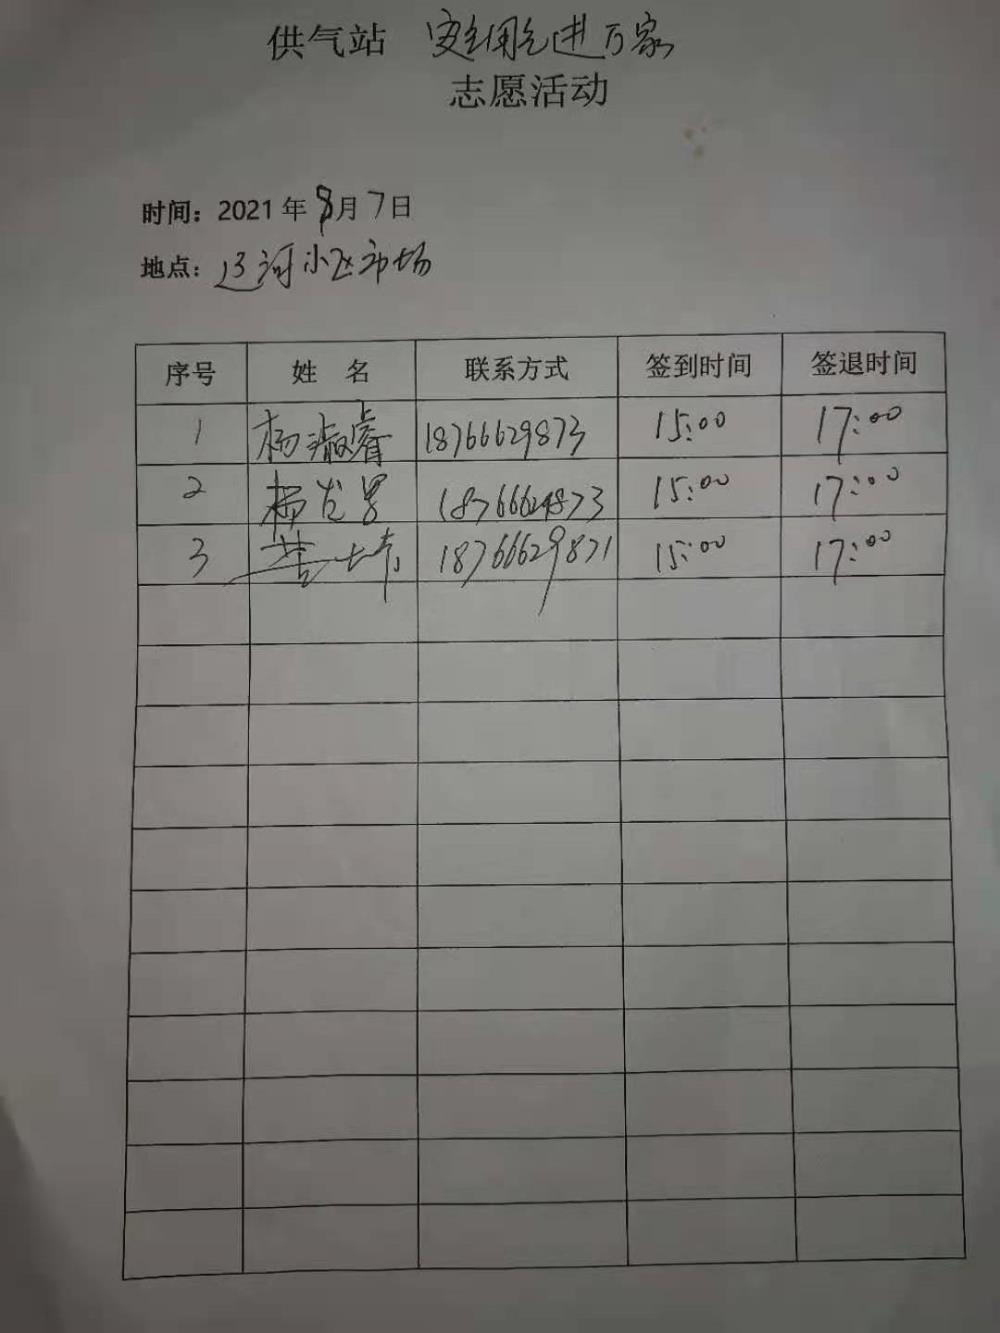 供气站 安全用气进万家
志愿活动
时间：2021年8月7日
地点：辽河小区市场
序号 姓 名 联系方式 签到时间 签退时间
1 杨淑睿 18766629873 15:00 17:00
2 杨光 18766629873 15:00 17:00
3 18766629871 15:00 17:00